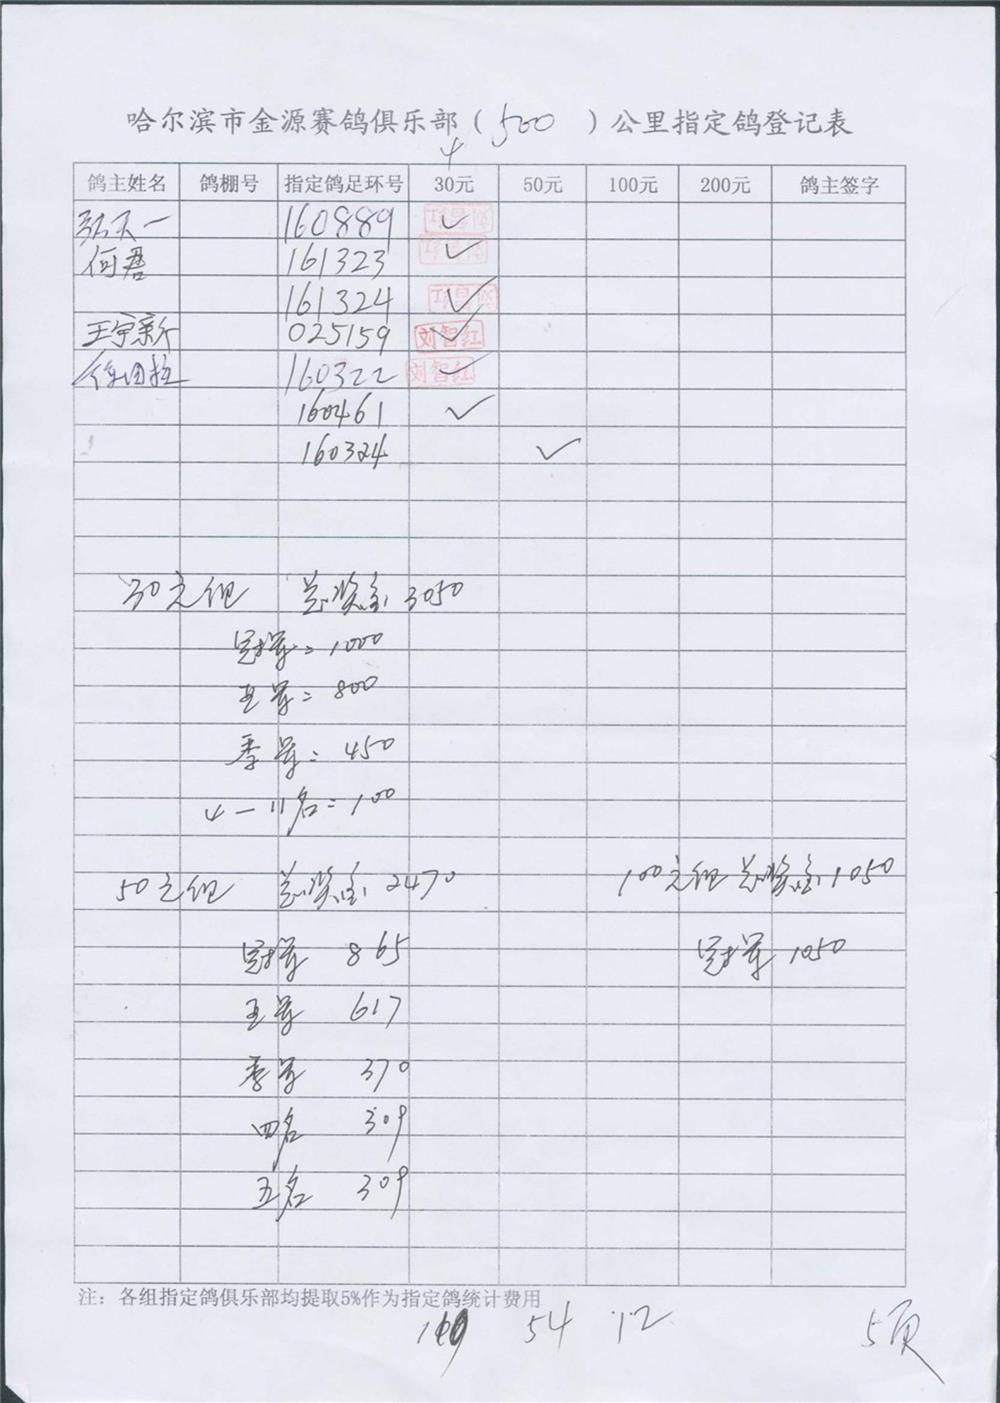 哈尔滨市金源赛鸽俱乐部（500）公里指定鸽登记表
4
鸽主姓名 鸽棚号 指定鸽足环号 30元 50元 100元 200元 鸽主签字
160889 ✓
何君 161323 ✓
161324 ✓
王宇新 025159 刘智红 ✓
160322 刘智红 ✓
160461 ✓
160324 ✓
30元组 总奖金 3050
冠军：1000
亚军：800
季军：450
4—11名：100
50元组 总奖金 2470 100元组 总奖金 1050
冠军 865 冠军 1050
亚军 617
季军 370
四名 309
五名 309
注：各组指定鸽俱乐部均提取5%作为指定鸽统计费用
54 12 5页